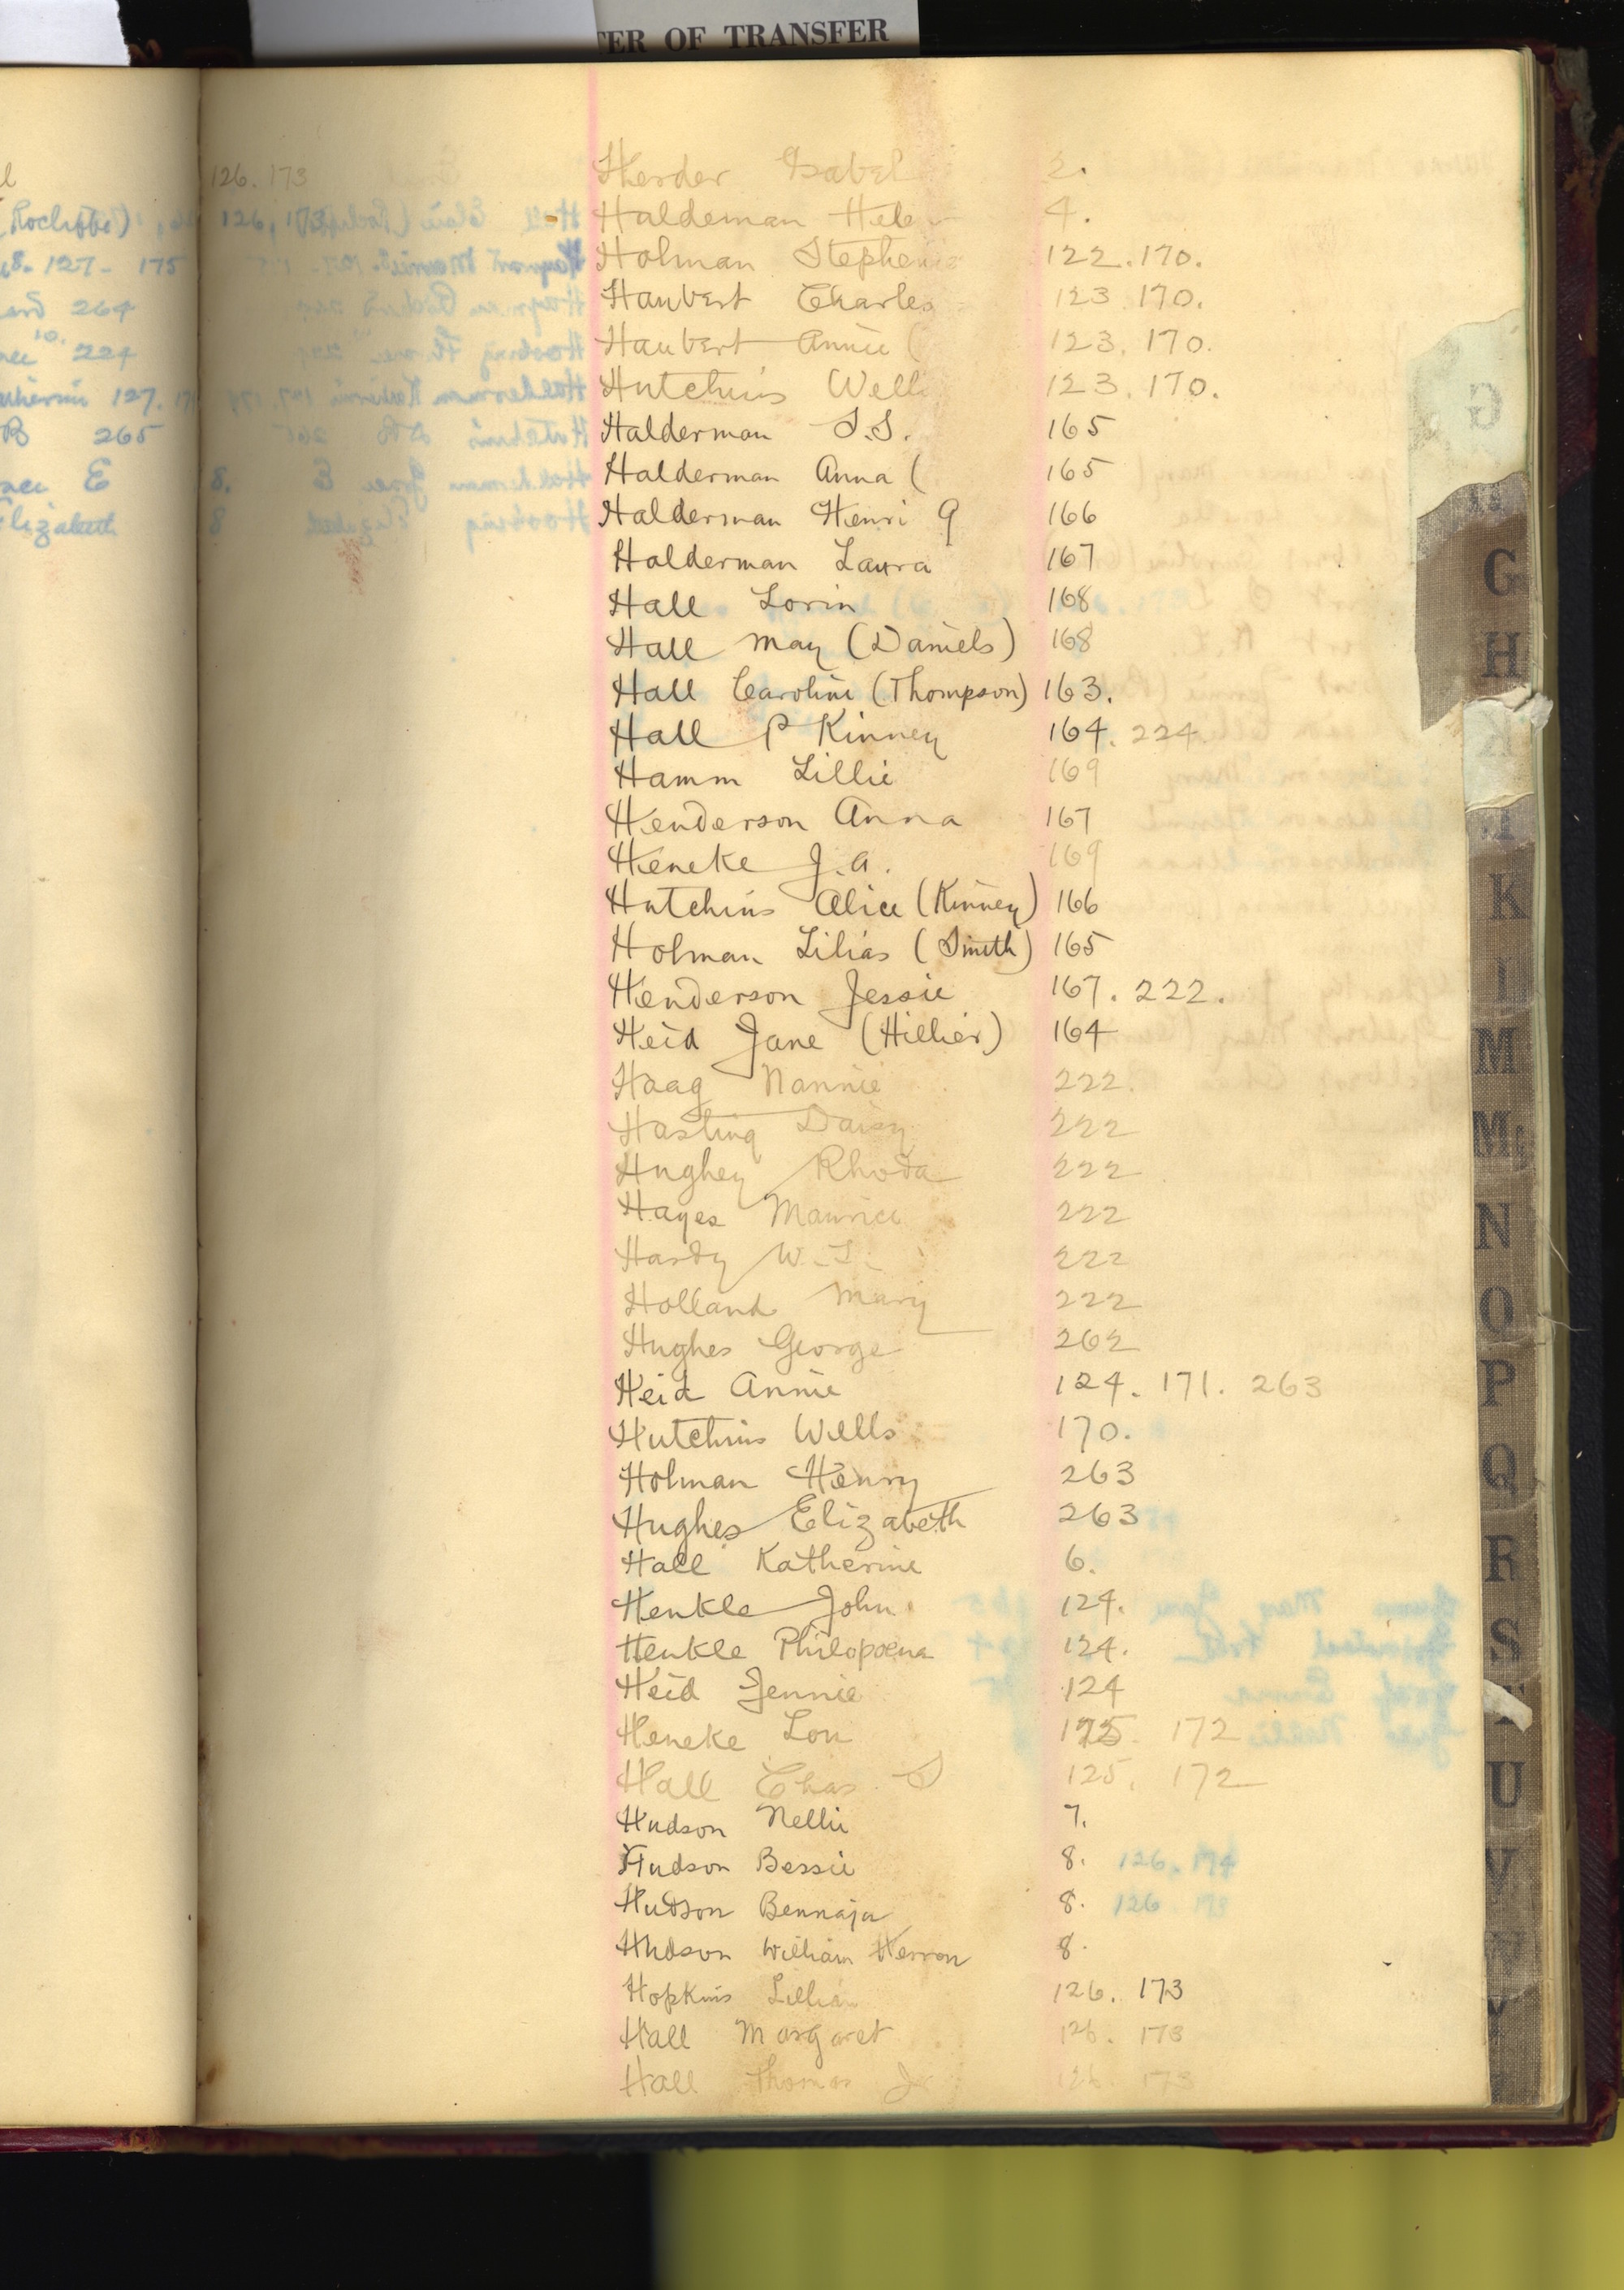 TER OF TRANSFER
126. 173
126, 173
(Rocliffe)
127- 175
264
10.
224
127.
265
E
8.
Elizabeth
8
Herder Isabel 2.
Haldeman Helen 4.
Holman Stephen 122. 170.
Haubert Charles 123. 170.
Haubert Annie ( 123. 170.
Hutchins Well 123. 170.
Halderman S.S. 165
Halderman Anna ( 165
Halderman Henri G 166
Halderman Laura 167
Hall Lorin 168
Hall May (Daniels) 168
Hall Caroline (Thompson) 163.
Hall P Kinney 164. 224
Hamm Lillie 169
Henderson Anna 167
Heneke J. A. 169
Hutchins Alice (Kinney) 166
Holman Lilias (Smith) 165
Henderson Jessie 167. 222.
Heid Jane (Hillier) 164
Haag Nannie 222.
Hasting Daisy 222
Hughey Rhoda 222
Hayes Maurice 222
Hardy W. 222
Holland Mary 222
Hughes George 262
Heid Annie 124. 171. 263
Hutchins Wells 170.
Holman Henry 263
Hughes Elizabeth 263
Hall Katherine 6.
Henkle John 124.
Henkle Philopoena 124.
Heid Jennie 124
Heneke Lou 125. 172
Hall Chas. S 125. 172
Hudson Nellie 7.
Hudson Bessie 8. 126. 174
Hudson Bennaja 8. 126
Hudson William Herron 8.
Hopkins Lillian 126. 173
Hall Margaret 126. 173
Hall Thomas Jr 126. 173
G
H
K
L
M
Mc
N
O
P
Q
R
S
U
V